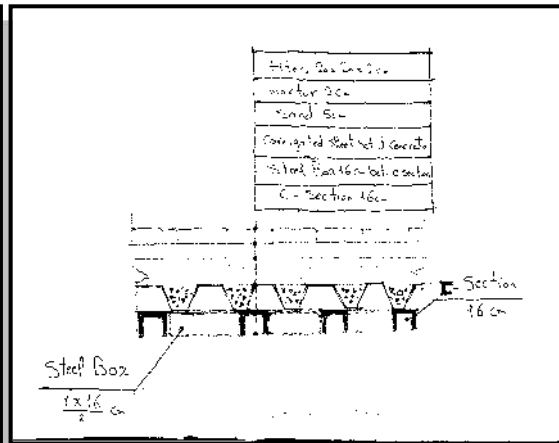 tiles 20x20x2cm
mortar 2cm
sand 5cm
corrugated sheet set of concrete
steel box 16cm bet. c section
C - Section 16cm
C - Section
16 cm
Steel Box
1 x 16
2 cm